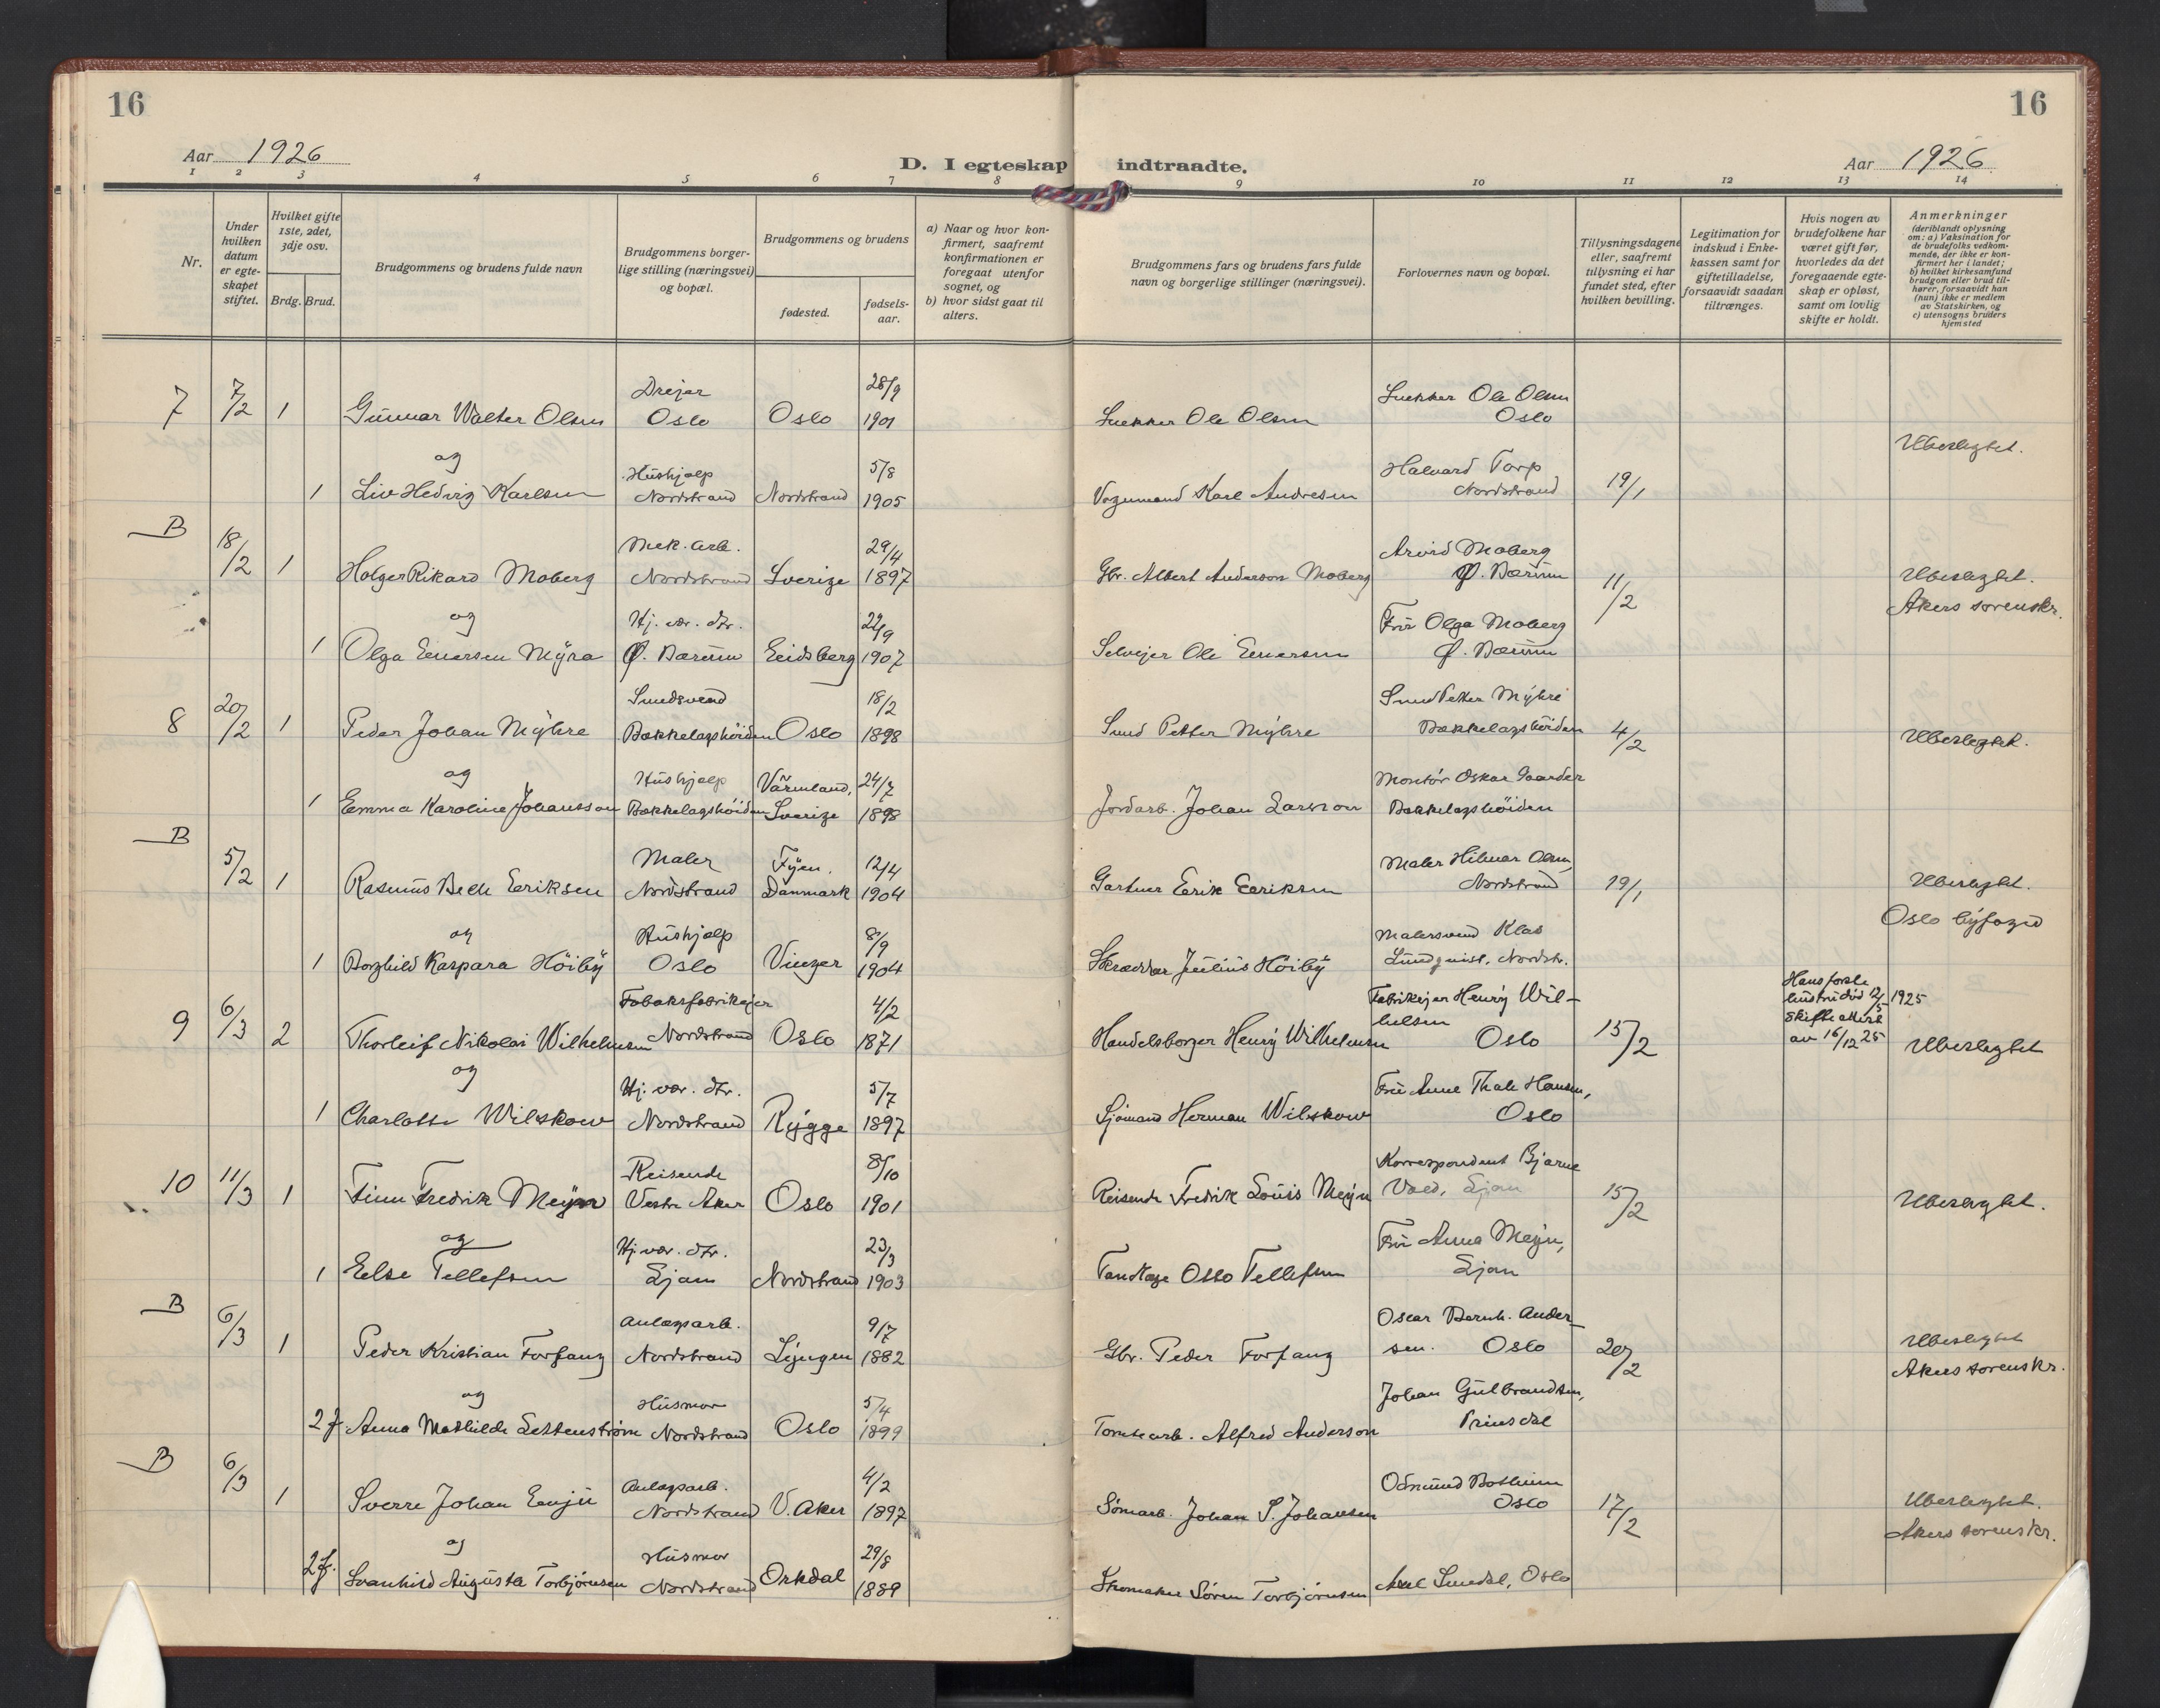 16
16
Aar 1926
D. I egteskap indtraadte.
Aar 1926
1 2 3 4 5 6 7 8 9 10 11 12 13 14
Nr.
Under hvilken datum er egteskapet stiftet.
Hvilket gifte 1ste, 2det, 3dje osv.
Brdg. Brud.
Brudgommens og brudens fulde navn
Brudgommens borgerlige stilling (næringsvei) og bopæl.
Brudgommens og brudens
fødested.
fødselsaar.
a) Naar og hvor konfirmert, saafremt konfirmationen er foregaat utenfor sognet, og
b) hvor sidst gaat til alters.
Brudgommens fars og brudens fars fulde navn og borgerlige stillinger (næringsvei).
Forlovernes navn og bopæl.
Tillysningsdagene eller, saafremt tilysning ei har fundet sted, efter hvilken bevilling.
Legitimation for indskud i Enkekassen samt for giftetilladelse, forsaavidt saadan tiltrænges.
Hvis nogen av brudefolkene har været gift før, hvorledes da det foregaaende egteskap er opløst, samt om lovlig skifte er holdt.
Anmerkninger (deriblandt oplysning om: a) Vaksination for de brudefolks vedkommende, der ikke er konfirmert her i landet; b) hvilket kirkesamfund brudgom eller brud tilhører, forsaavidt han (hun) ikke er medlem av Statskirken, og c) utensogns bruders hjemsted
7 7/2 1 Gunnar Walter Olsen Drejer Oslo Oslo 28/9 1901 Snekker Ole Olsen Snekker Ole Olsen Oslo Ubeslegtet.
og
1 Liv Hedvig Karlsen Hushjælp Nordstrand Nordstrand 5/8 1905 Vognmand Karl Andresen Halvard Torp Nordstrand 19/1
B 18/2 1 Holger Rikard Moberg Mek. arb. Nordstrand Sverige 29/4 1897 Gbr. Albert Anderson Moberg Arvid Moberg Ø. Bærum 11/2 Ubeslegtet. Akers sorenskr.
og
1 Olga Enersen Myra Hj. vær. dtr. Ø. Bærum Eidsberg 22/9 1907 Selveier Ole Enersen Fru Olga Moberg Ø. Bærum
8 20/2 1 Peder Johan Myhre Smedsvend Bækkelagshöiden Oslo 18/2 1898 Smed Petter Myhre Smed Petter Myhre Bækkelagshöiden 4/2 Ubeslegtet.
og
1 Emma Karoline Johansson Hushjælp Bækkelagshöiden Värmland, Sverige 24/7 1898 Jordarb. Johan Larsson Montör Oskar Gaarder Bækkelagshöiden
B 5/2 1 Rasmus Bech Eriksen Maler Nordstrand Fyen, Danmark 12/4 1904 Gartner Erik Eriksen Maler Hilmar Olsen, Nordstrand 19/1 Ubeslegtet. Oslo byfogd
og
1 Borghild Kaspara Höiby Hushjælp Oslo Vinger 8/9 1904 Skrædder Julius Höiby Malersvend Klas Lundquist, Nordstr.
9 6/3 2 Thorleif Nikolai Wilhelmsen Tobaksfabrikejer Nordstrand Oslo 4/2 1871 Handelsborger Henry Wilhelmsen Fabrikejer Henry Wilhelmsen Oslo 15/2 Hans forste hustru död 12/5 1925 Skifteattest av 16/12 25 Ubeslegtet
og
1 Charlotte Wilskow Hj. vær. dtr. Nordstrand Rygge 5/7 1897 Sjömand Herman Wilskow Fru Anne Thale Hansen, Oslo
10 11/3 1 Finn Fredrik Meyn Reisende Vestre Aker Oslo 8/10 1901 Reisende Fredrik Louis Meyn Korrespondent Bjarne Vold, Ljan 15/2 Ubeslegtet.
og
1 Else Tellefsen Hj. vær. dtr. Ljan Nordstrand 23/3 1903 Tandlæge Otto Tellefsen Fru Anna Meyn, Ljan
B 6/3 1 Peder Kristian Forfang Anlægsarb. Nordstrand Lyngen 9/7 1882 Gbr. Peder Forfang Oscar Bernh. Andersen. Oslo 20/2 Ubeslegtet Akers sorenskr.
og
2 f. Anna Mathilde Settenström Husmor Nordstrand Oslo 5/4 1899 Tomtearb. Alfred Anderson Johan Gulbrandsen, Prinsdal
B 6/3 1 Sverre Johan Anlægsarb. Nordstrand V. Aker 4/2 1897 Johan S. Johansen Odmund Oslo 17/2 Ubeslegtet. Akers sorenskr.
og
2 f. Svanhild Augusta Torbjörnsen Husmor Nordstrand Orkdal 29/8 1889 Skomaker Sören Torbjörnsen Axel Sundal, Oslo